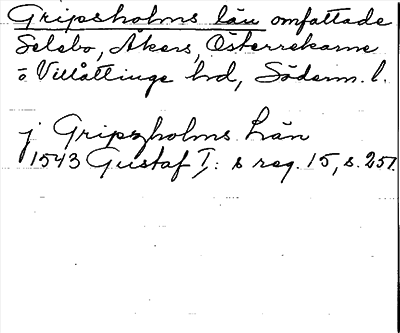 Gripsholms län omfattade
Selebo, Åkers, Österrekarne
o Villåttinge hrd, Söderm. l.
j Gripzholms Län
1543 Gustaf I:s reg. 15, s. 257.